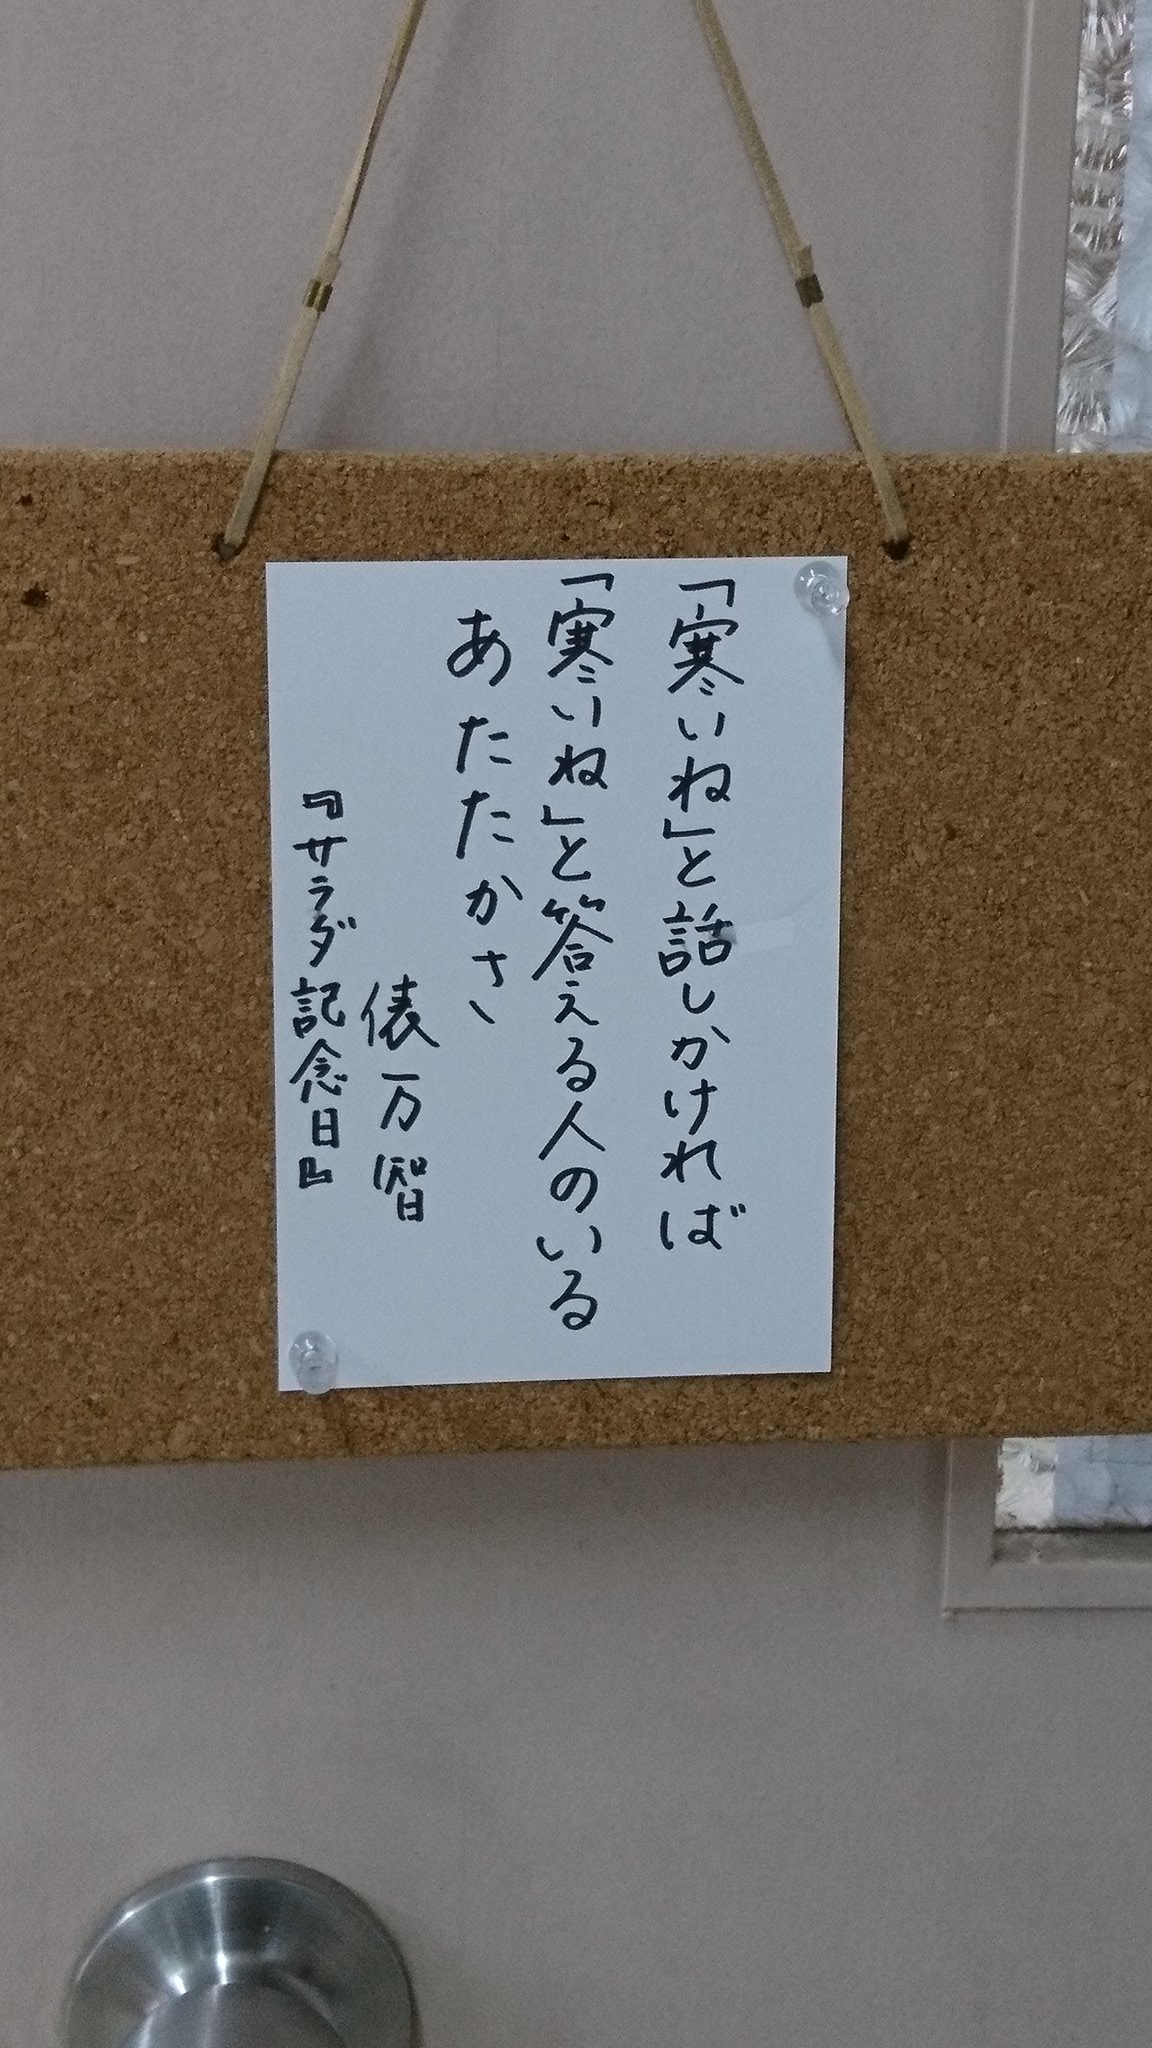 「寒いね」と話しかければ
「寒いね」と答える人のいる
あたたかさ
俵万智
『サラダ記念日』